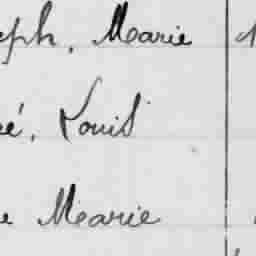 eph, Marie
é, Louis
e Marie